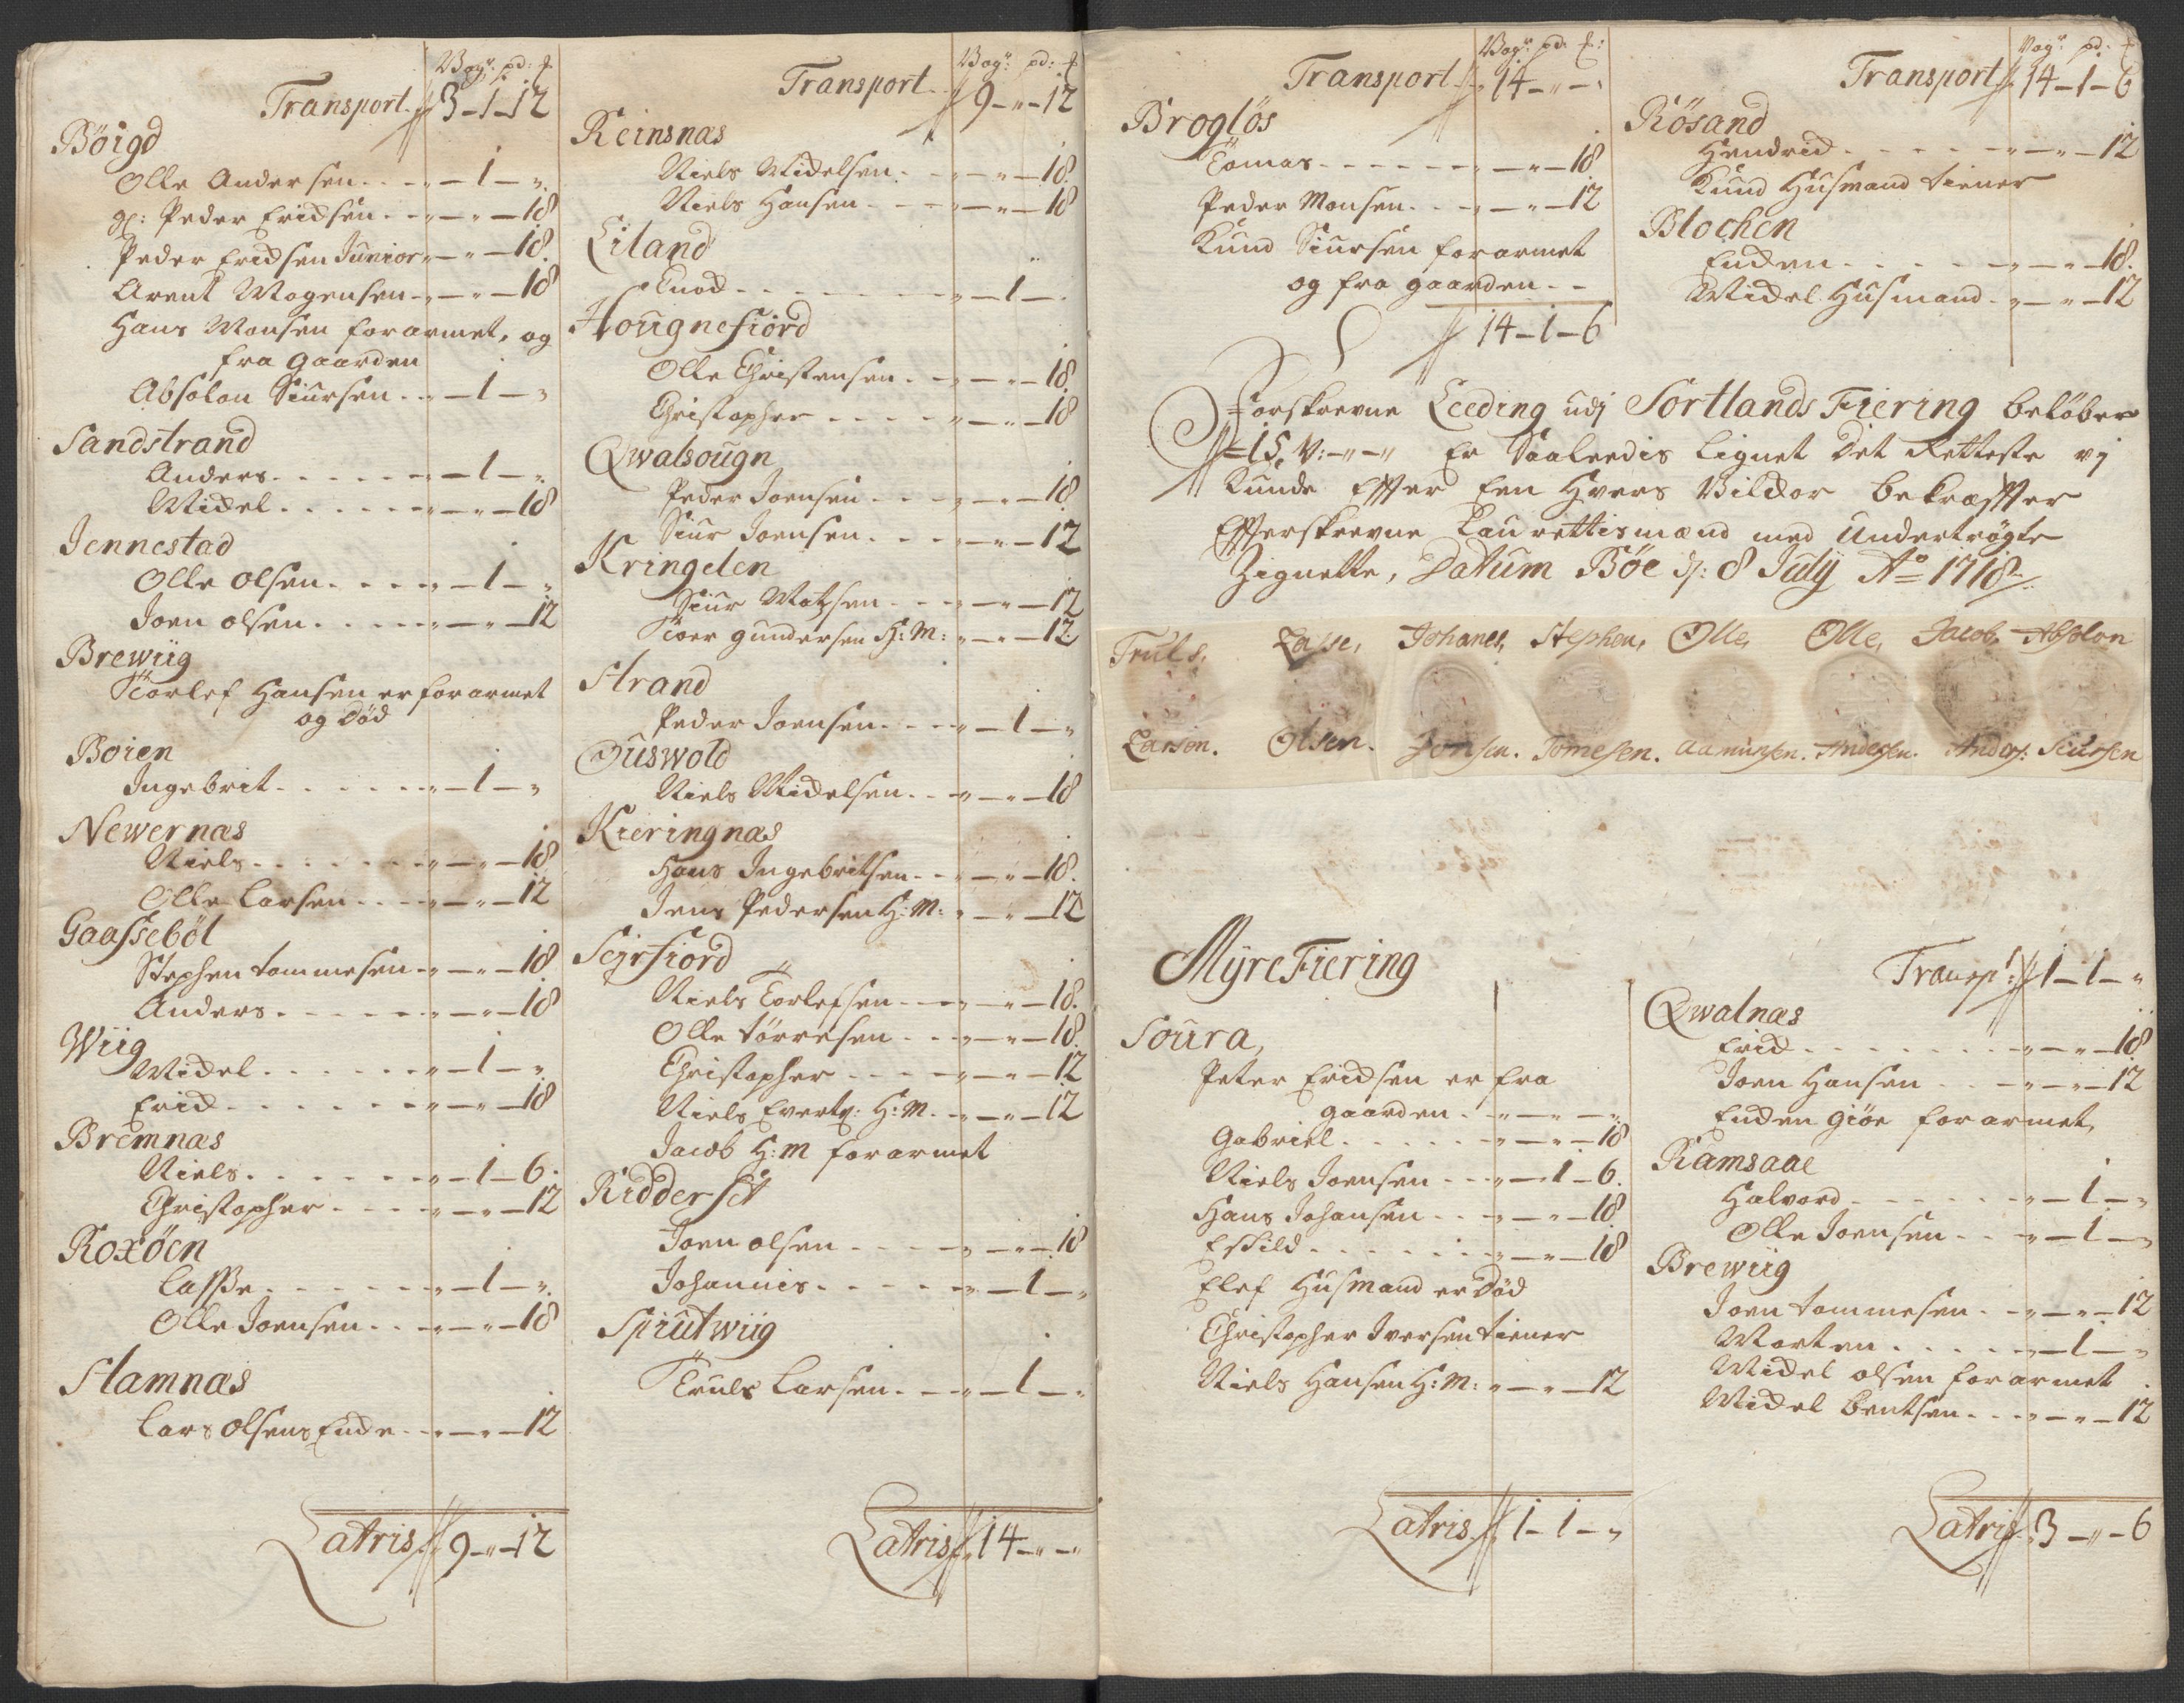 Vog: pd: £
Transport 3-1-12
Böigd
Olle Andersen - - „-1-„
gl: Peder Ericksen - - „-„-18
Peder Ericksen Junior „-„-18
Arent Mogensen „-„-18
Hans Monsen forarmet, og
fra gaarden
Absolon Siursen - - „-1-„
Sandstrand
Anders - - „-1-„
Mickel - - „-„-18
Jennestad
Olle olsen - - „-1-„
Joen olsen - - „-„-12
Brewiig
Torlef Hansen er forarmet
og død
Boien
Ingebrit - - „-1-„
Newernæs
Niels - - „-„-18
Olle Larsen - - „-„-12
Gaassebøl
Stephen tommesen „-„-18
Anders - - „-„-18
Wiig
Mickel - - „-1-„
Erick - - „-„-18
Bremnæs
Niels - - „-1-6
Christopher - - „-„-12
Roxöen
Lasse - - „-1-„
Olle Joensen - - „-„-18
Stamnæs
Lars Olsens Encke - - „-„-12
Latris 9-„-12
Vog: pd: £
Transport 9-„-12
Reinsnæs
Niels Mickelsen - - „-„-18
Niels Hansen - - „-„-18
Eiland
Knod - - „-1-„
Hougnefiord
Olle Christensen - - „-„-18
Christopher - - „-„-18
Qwalsougn
Peder Joensen - - „-„-18
Siur Joensen - - „-„-12
Kringelen
Siur Matzsen - - „-„-12
Toer gundersen H:M: „-„-12
Strand
Peder Joensen - - „-1-„
Ouswold
Niels Mickelsen - - „-„-18
Kieringnæs
Hans Ingebritsen - - „-„-18
Jens Pedersen H:M: „-„-12
Sejrfiord
Niels Torlefsen - - „-„-18
Olle tørresen - - „-„-18
Christopher - - „-„-12
Niels Evertz: H:M. „-„-12
Jacob H:M forarmet
Ridderset
Joen olsen - - „-„-18
Johannis - - „-1-„
Spiutwiig
Truls Larsen - - „-1-„
Latris 14-„-„
Vog: pd: £:
Transport 14-„-„
Brogløs
Tomas - - „-„-18
Peder Monsen - - „-„-12
Knud Siursen forarmet
og fra gaarden - -
14-1-6
Vog: pd: £
Transport 14-1-6
Rösand
Hendrick - - „-„-12
Knud Husmand tiener
Blochen
Encken - - „-„-18
Mickel Husmand - „-„-12
Forskrevne Leeding udj Sortlands Fiering beløber
15, V:-„-„ Er Saaleedis Lignet Det Retteste vj
Kunde Effter Een Hvers Vilckor bekræffter
Effterskrevne Laurettismænd med Undertrøgte
Zignette, Datum Böe d: 8 Julij Ao 1718
Truls, Lasse, Johanes, Stephen, Olle, Olle, Jacob Absolon
Larsen. Olsen. Jonsen. Tomesen. Aamunsen. Andersen. Anders: Siursen
MÿreFiering
Soura,
Peter Ericksen er fra
gaarden - „-„-„
Gabriel - - „-„-18
Niels Joensen - - „-1-6
Hans Johansen - - „-„-18
Eskild - - „-„-18
Elef Husmand er Død
Christopher Iversen tiener
Niels Hansen H:M: „-„-12
Latris 1-1-„
Transpt: 1-1-„
Qwalnæs
Erick - - „-„-18
Joen Hansen - - „-„-12
Encken giøe forarmet,
Ramsaae
Halvord - - „-1-„
Olle Joensen - - „-1-„
Brewiig
Joen tommesen - - „-„-12
Morten - - „-1-„
Mickel olsen forarmet
Mickel bentsen - - „-„-12
Latris 3-„-6